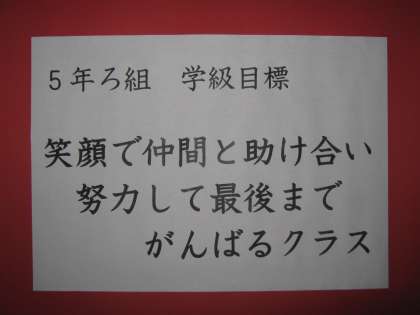 5年ろ組　学級目標
笑顔で仲間と助け合い
努力して最後まで
がんばるクラス